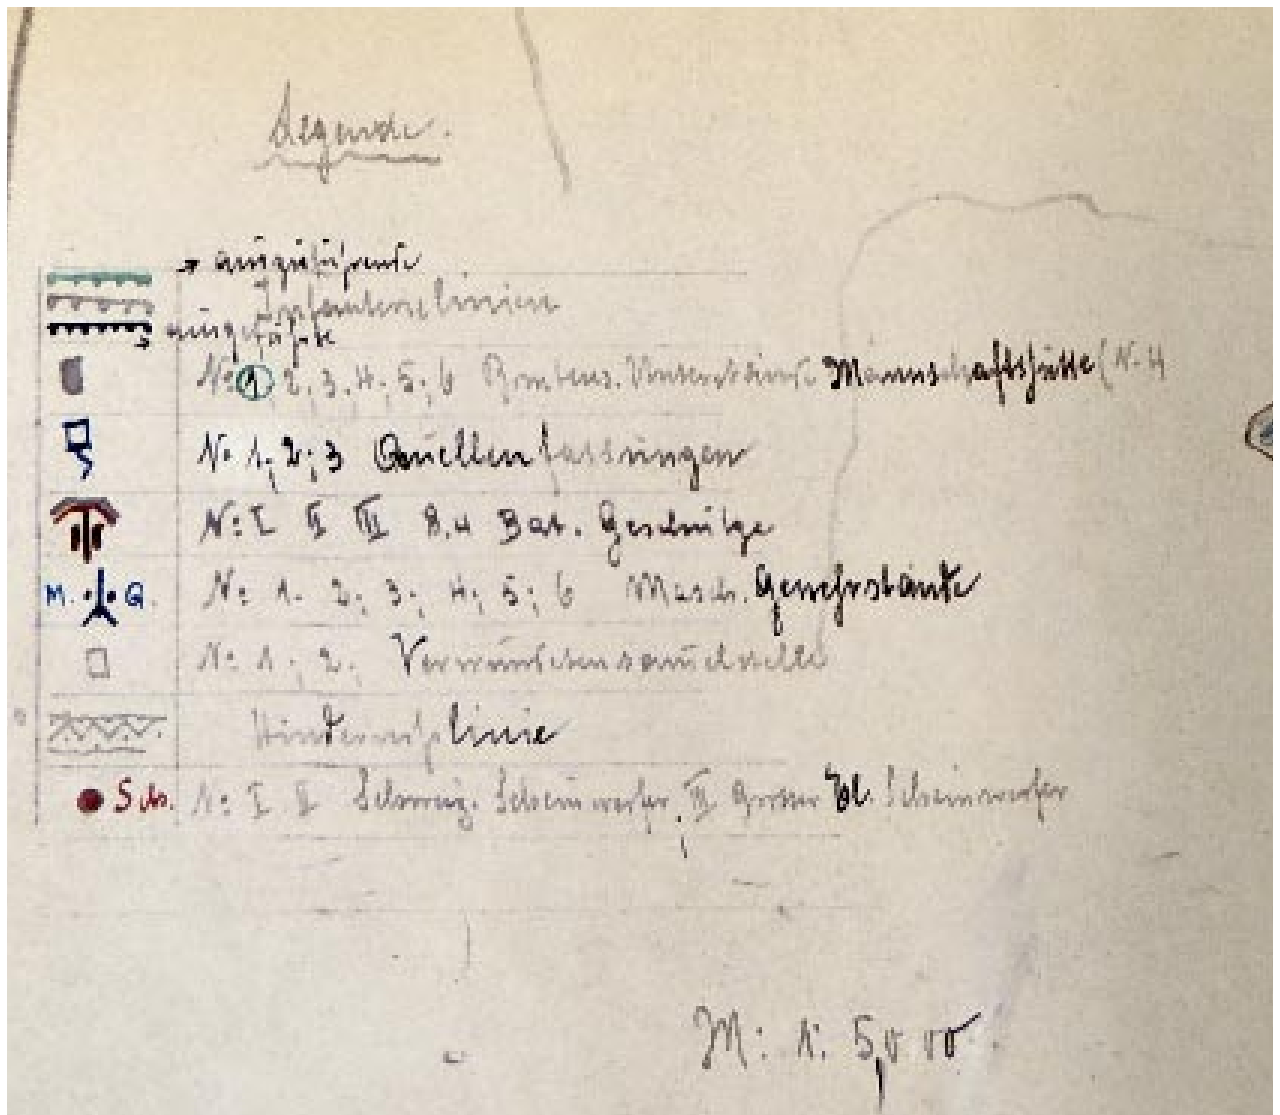 Legende.
auszuführende
Infanterielinien
ausgeführte
No 1, 2; 3, 4; 5; 6 Unterstände Mannschaftshütte (No 4
No 1; 2; 3 Quellenfassungen
No: I II III 8.4 Bat. Geschütze
M. G. No: 1. 2; 3; 4; 5; 6 Masch. Gewehrstände
No: 1; 2;
Hindernislinie
Sch. No: I II Scheinwerfer, III Grosser Scheinwerfer
M: 1: 5,000